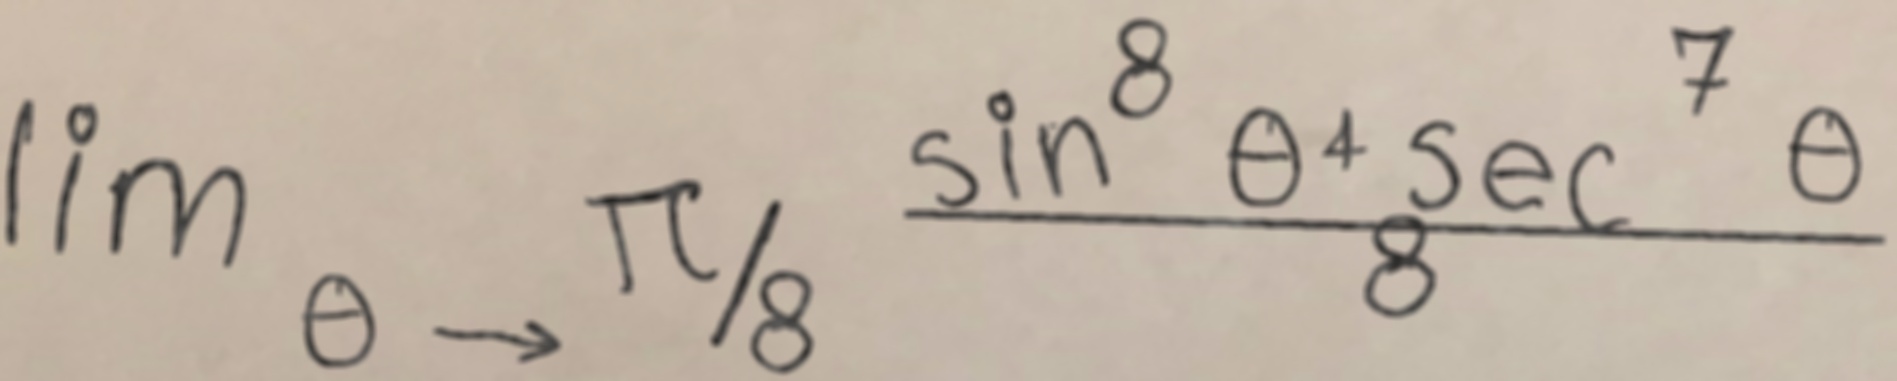 lim θ → π/8 (sin^8 θ + sec^7 θ)/8